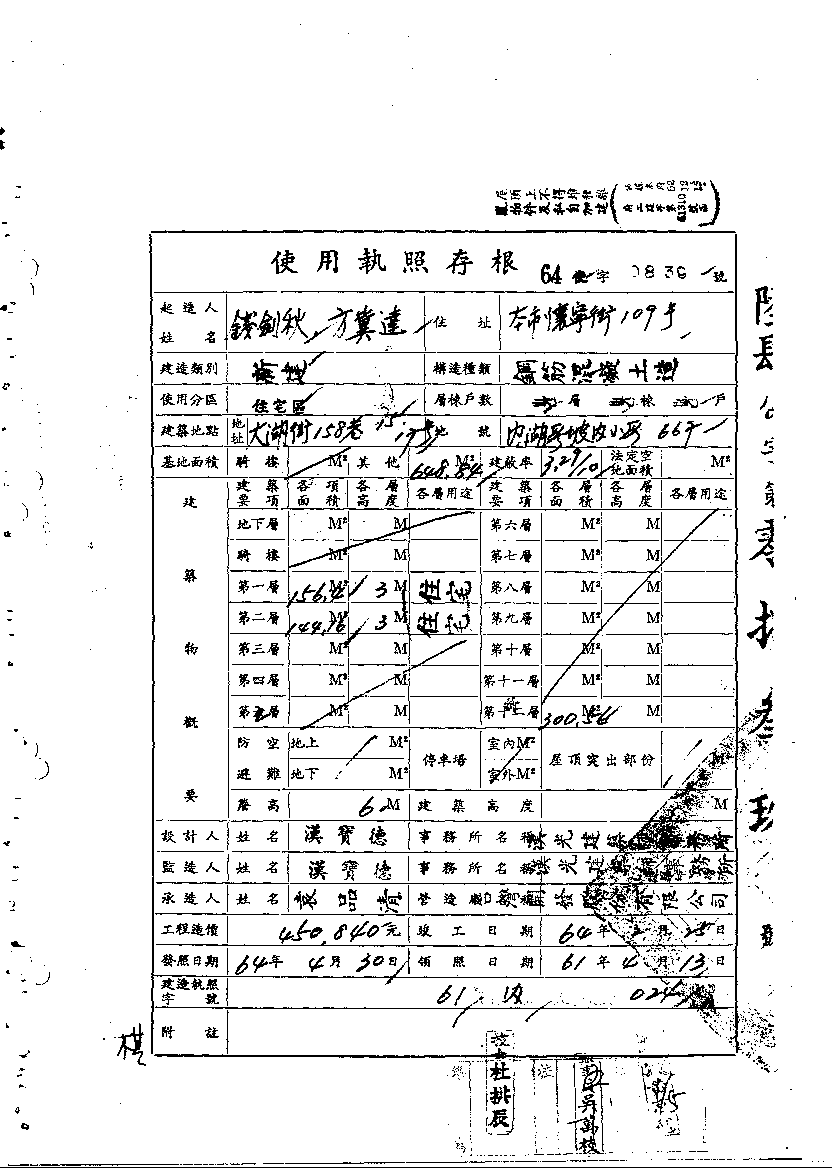 使用執照存根 64 使字 0839 號
起造人姓名 錢劍秋 方冀達 住址 本市懷寧街109号
建造類別 新建 構造種類 鋼筋混凝土造
使用分區 住宅區 層棟戶數 層 棟 戶
建築地點 地址 大湖街158巷 地號 內湖
基地面積 騎樓 M² 其他 648.84 M² 建蔽率 法定空地面積 M²
建築物概要
建築要項 各項面積 各層高度 各層用途 建築要項 各層面積 各層高度 各層用途
地下層 M² M 第六層 M² M
騎樓 M² M 第七層 M² M
第一層 156.4 M² 3 M 住宅 第八層 M² M
第二層 144.16 M² 3 M 住宅 第九層 M² M
第三層 M² M 第十層 M² M
第四層 M² M 第十一層 M² M
第五層 M² M 300.56
防空避難 地上 M² 停車場 室內M² 屋頂突出部份 M²
地下 M² 室外M²
簷高 6 M 建築高度 M
設計人 姓名 漢寶德 事務所名稱
監造人 姓名 漢寶德 事務所名稱
承造人 姓名 袁品清 開發股份有限公司
工程造價 450,840元 竣工日期 64年2月25日
發照日期 64年4月30日 領照日期 61年4月13日
建造執照字號 61 內 024
附註
棋